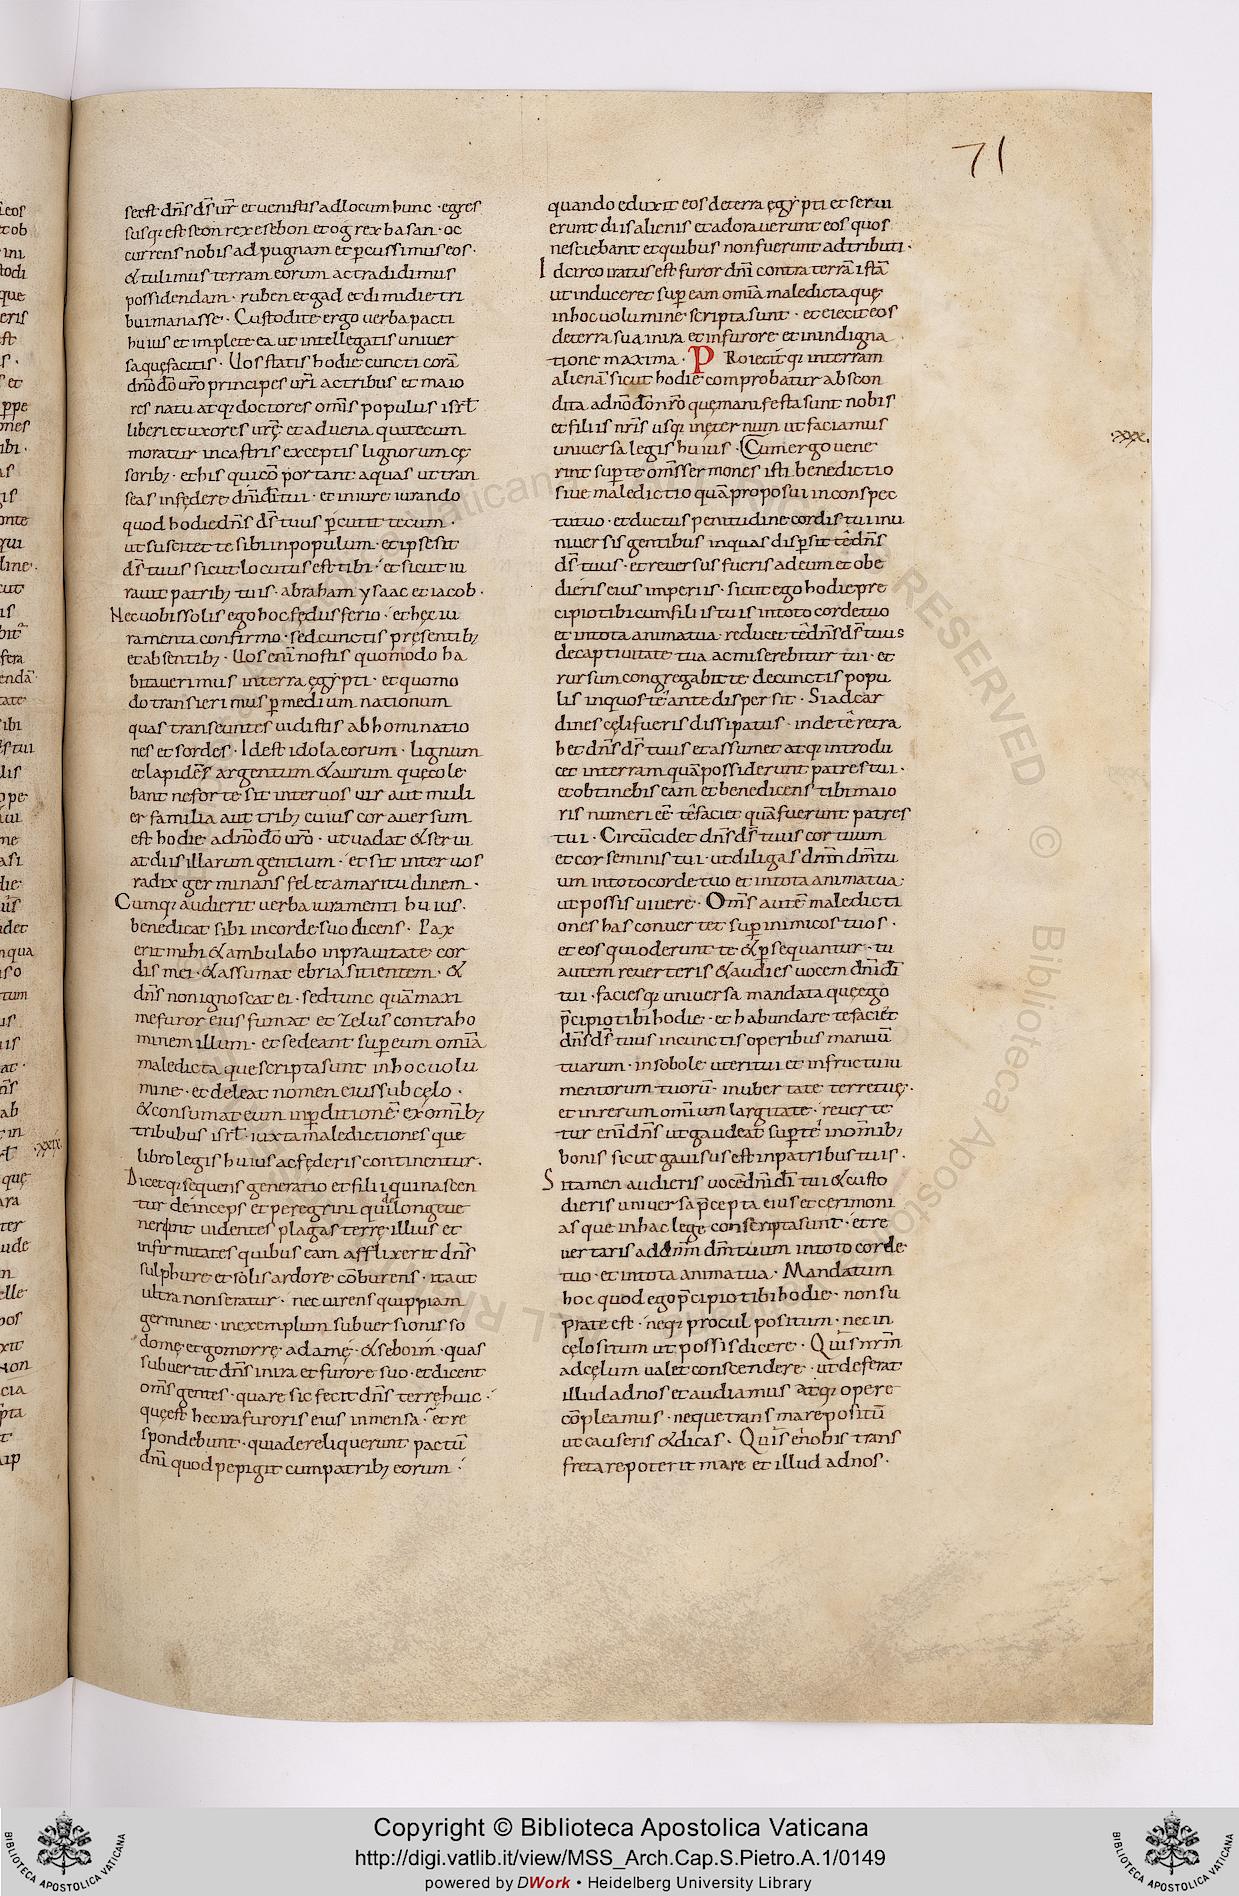 71
seest dn̄s ds̄ ur̄ et uenistis ad locum hunc · egres
susq; est seon rex esebon et og rex basan · oc
currens nobis ad pugnam et ꝑcussimus eos ·
& tulimus terram eorum ac tradidimus
possidendam · ruben et gad et dimidie tri
bui manasse · Custodite ergo uerba pacti
huius et implete ea ut intellegatis uniuer
sa quę facitis · Uos statis hodie cuncti corā
dn̄o dō ur̄o principes ur̄i ac tribus et maio
res natu atq; doctores om̄s populus isr̄l
liberi et uxores ur̄ę et aduena qui tecum
moratur in castris exceptis lignorum cę
sorib; et his qui cō portant aquas ut tran
seas in fędere dn̄i dī tui · et in iure iurando
quod hodie dn̄s ds̄ tuus ꝑcutit tecum ·
ut suscitet te sibi in populum · et ipse sit
ds̄ tuus sicut locutus est tibi · et sicut iu
rauit patrib; tuis · abraham ysaac et iacob ·
Nec uobis solis ego hoc fedus ferio · et hęc iu
ramenta confirmo · sed cunctis pręsentib;
et absentib; Uos eni nostis quomodo ha
bitauerimus in terra ęgypti · et quomo
do transierimus ꝑ medium nationum
quas transeuntes uidistis abhominatio
nes et sordes · Id est idola eorum · lignum
et lapidēs argentum & aurum que cole
bant ne forte sit inter uos uir aut muli
er familia aut trib; cuius cor auersum
est hodie a dn̄o dō ur̄o · ut uadat & serui
at diis illarum gentium · et sit inter uos
radix germinans fel et amaritudinem ·
Cumq; audierit uerba iuramenti huius ·
benedicat sibi in corde suo dicens · Pax
erit mihi & ambulabo in prauitate cor
dis mei · & assumat ebria sitientem · &
dn̄s non ignoscat ei · sed tunc quā maxi
me furor eius fumat et zelus contra ho
minem illum · et sedeant suꝑ eum omīa
maledicta que scripta sunt in hoc uolu
mine · et deleat nomen eius sub cęlo ·
& consumat eum in ꝑditionē ex omīb;
tribubus isr̄l · iuxta maledictiones que
libro legis huius ac fęderis continentur ·
Dicetq; sequens generatio et filii qui nascen
tur deinceps et peregrini qui de longe ue
nerint uidentes plagas terrę illius et
infirmitates quibus eam afflixerit dn̄s
sulphure et solis ardore cōburens · ita ut
ultra non seratur · nec uirens quippiam
germinet · in exemplum subuersionis so
domę et gomorrę adamę · & seboim · quas
subuertit dn̄s in ira et furore suo · et dicent
om̄s gentes · quare sic fecit dn̄s terrę huic ·
quę est hec ira furoris eius inmensa · et re
spondebunt · quia dereliquerunt pactū
dn̄i quod pepigit cum patrib; eorum ·
quando eduxit eos de terra ęgypti et serui
erunt diis alienis et adorauerunt eos quos
nesciebant et quibus non fuerunt adtributi ·
Idcirco iratus est furor dn̄i contra terrā istā
ut induceret suꝑ eam omīa maledicta quę
in hoc uolumine scripta sunt · et eiecit eos
de terra sua in ira et in furore et in indigna
tione maxima · PRoiecitq; in terram
alienā sicut hodie comprobatur abscon
dita a dn̄o dō nr̄o quę manifesta sunt nobis
et filiis nr̄is usq; in ęternum ut faciamus
uniuersa legis huius · Cum ergo uene
rint suꝑ te om̄s sermones isti benedictio
siue maledictio quā proposui in conspec
tu tuo · et ductus penitudine cordis tui in u
niuersis gentibus in quas disꝑsit tē dn̄s
ds̄ tuus · et reuersus fueris ad eum et obe
dieris eius imperiis · sicut ego hodie pre
cipio tibi cum filiis tuis in toto corde tuo
et in tota anima tua reducet tē dn̄s ds̄ tuus
de captiuitate tua ac miserebitur tui · et
rursum congregabit te de cunctis popu
lis in quos tē ante dispersit · Si ad car
dines cęli fueris dissipatus · inde tē retra
het dn̄s ds̄ tuus et assumet atq; introdu
cet in terram quā possiderunt patres tui ·
et obtinebis eam et benedicens tibi maio
ris numeri eē tē faciet quā fuerunt patres
tui · Circūcidet dn̄s ds̄ tuus cor tuum
et cor seminis tui · ut diligas dnm̄ dm̄ tu
um in toto corde tuo et in tota anima tua ·
ut possis uiuere · Om̄s autē maledicti
ones has conuertet suꝑ inimicos tuos ·
et eos qui oderunt te & ꝑsequantur · tu
autem reuerteris & audies uocem dn̄i dī
tui · faciesq; uniuersa mandata quę ego
p̄cipio tibi hodie · et habundare te faciet
dn̄s ds̄ tuus in cunctis operibus manuū
tuarum · in sobole uteri tui et in fructu iu
mentorum tuorū · in ubertate terre tuę ·
et in rerum omīum largitate · reuerte
tur enī dn̄s ut gaudeat suꝑ te in omīb;
bonis sicut gauisus est in patribus tuis ·
Si tamen audieris uocē dn̄i dī tui & custo
dieris uniuersa p̄cepta eius et cęrimoni
as que in hac lege conscripta sunt · et re
uertaris ad dnm̄ dm̄ tuum in toto corde
tuo · et in tota anima tua · Mandatum
hoc quod ego p̄cipio tibi hodie · non su
pra te est · neq; procul positum · nec in
cęlo situm ut possis dicere · Quis nr̄m
ad cęlum ualet conscendere · ut deferat
illud ad nos et audiamus atq; opere
cōpleamus · neque trans mare positū
ut causeris & dicas · Quis e nobis trans
fretare poterit mare et illud ad nos ·
·xxx·
·xxix·
Copyright © Biblioteca Apostolica Vaticana
http://digi.vatlib.it/view/MSS_Arch.Cap.S.Pietro.A.1/0149
powered by DWork • Heidelberg University Library
BIBLIOTECA APOSTOLICA VATICANA
BIBLIOTECA APOSTOLICA VATICANA